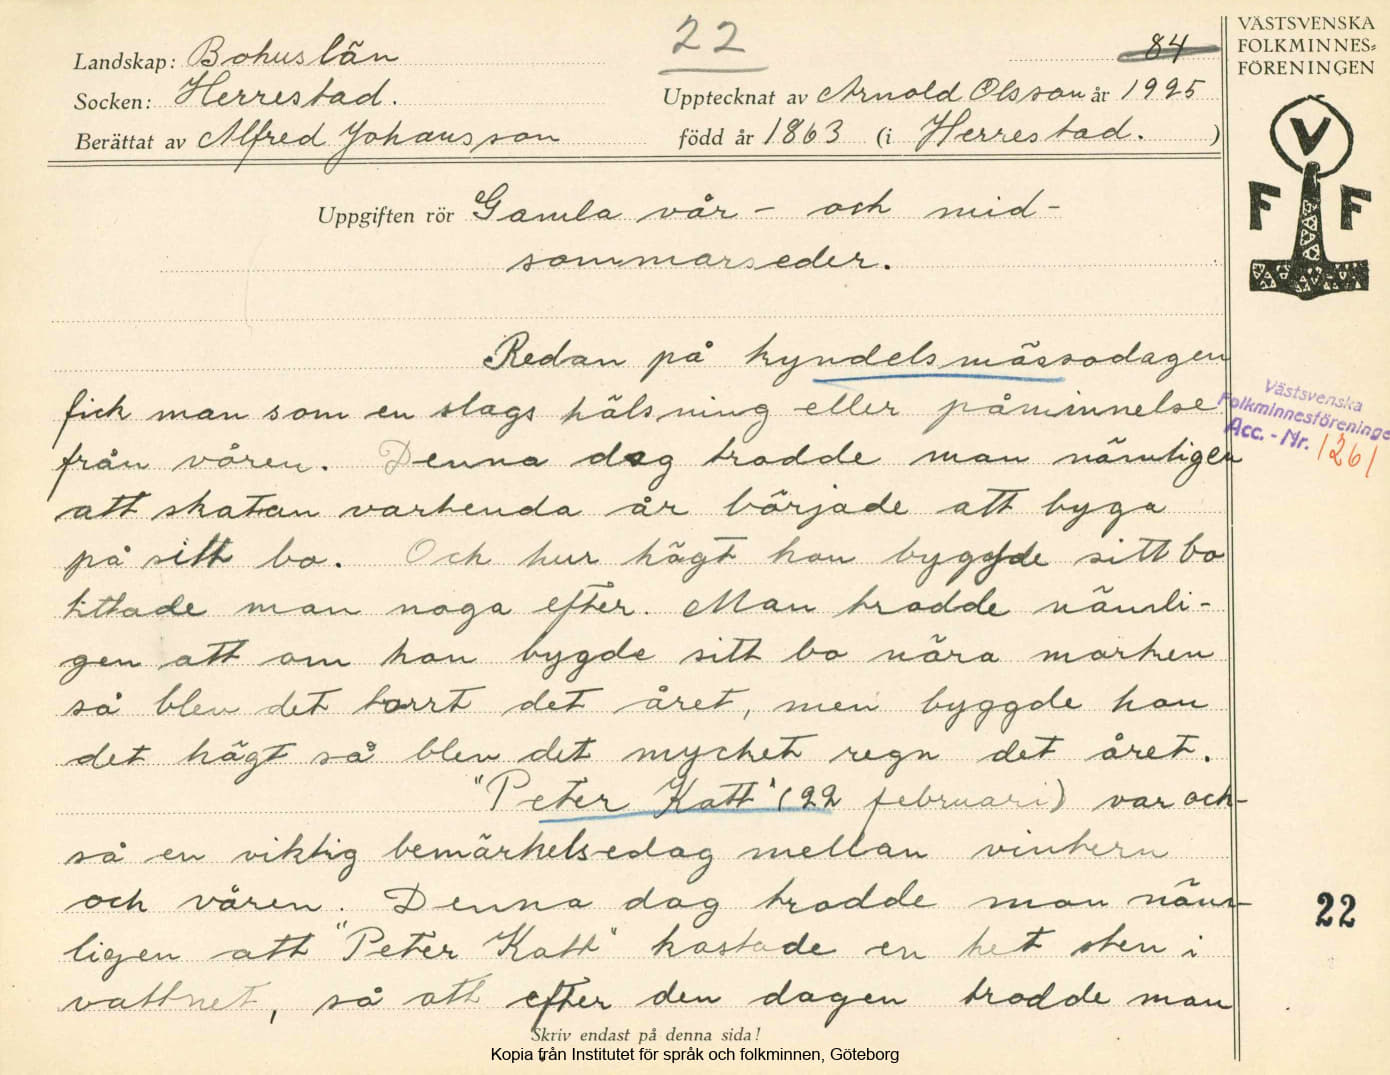 22
84
VÄSTSVENSKA
FOLKMINNES=
FÖRENINGEN
Landskap: Bohuslän
Socken: Herrestad.
Upptecknat av Arnold Olsson år 1925
Berättat av Alfred Johansson
född år 1863 (i Herrestad. )
V
F F
Uppgiften rör Gamla vår- och mid-
sommarseder.
Redan på kyndelsmässodagen
fick man som en slags hälsning eller påminnelse
från våren. Denna dag trodde man nämligen
att skatan vartenda år började att byga
på sitt bo. Och hur högt hon byggde sitt bo
tittade man noga efter. Man trodde nämli-
gen att om hon bygde sitt bo nära marken
så blev det torrt det året, men byggde hon
det högt så blev det mycket regn det året.
"Peter Katt" (22 februari) var ock-
så en viktig bemärkelsedag mellan vintern
och våren. Denna dag trodde man näm-
ligen att "Peter Katt" kastade en het sten i
vattnet, så att efter den dagen trodde man
Västsvenska
Folkminnesföreningen
Acc. - Nr. 1261
22
Skriv endast på denna sida!
Kopia från Institutet för språk och folkminnen, Göteborg